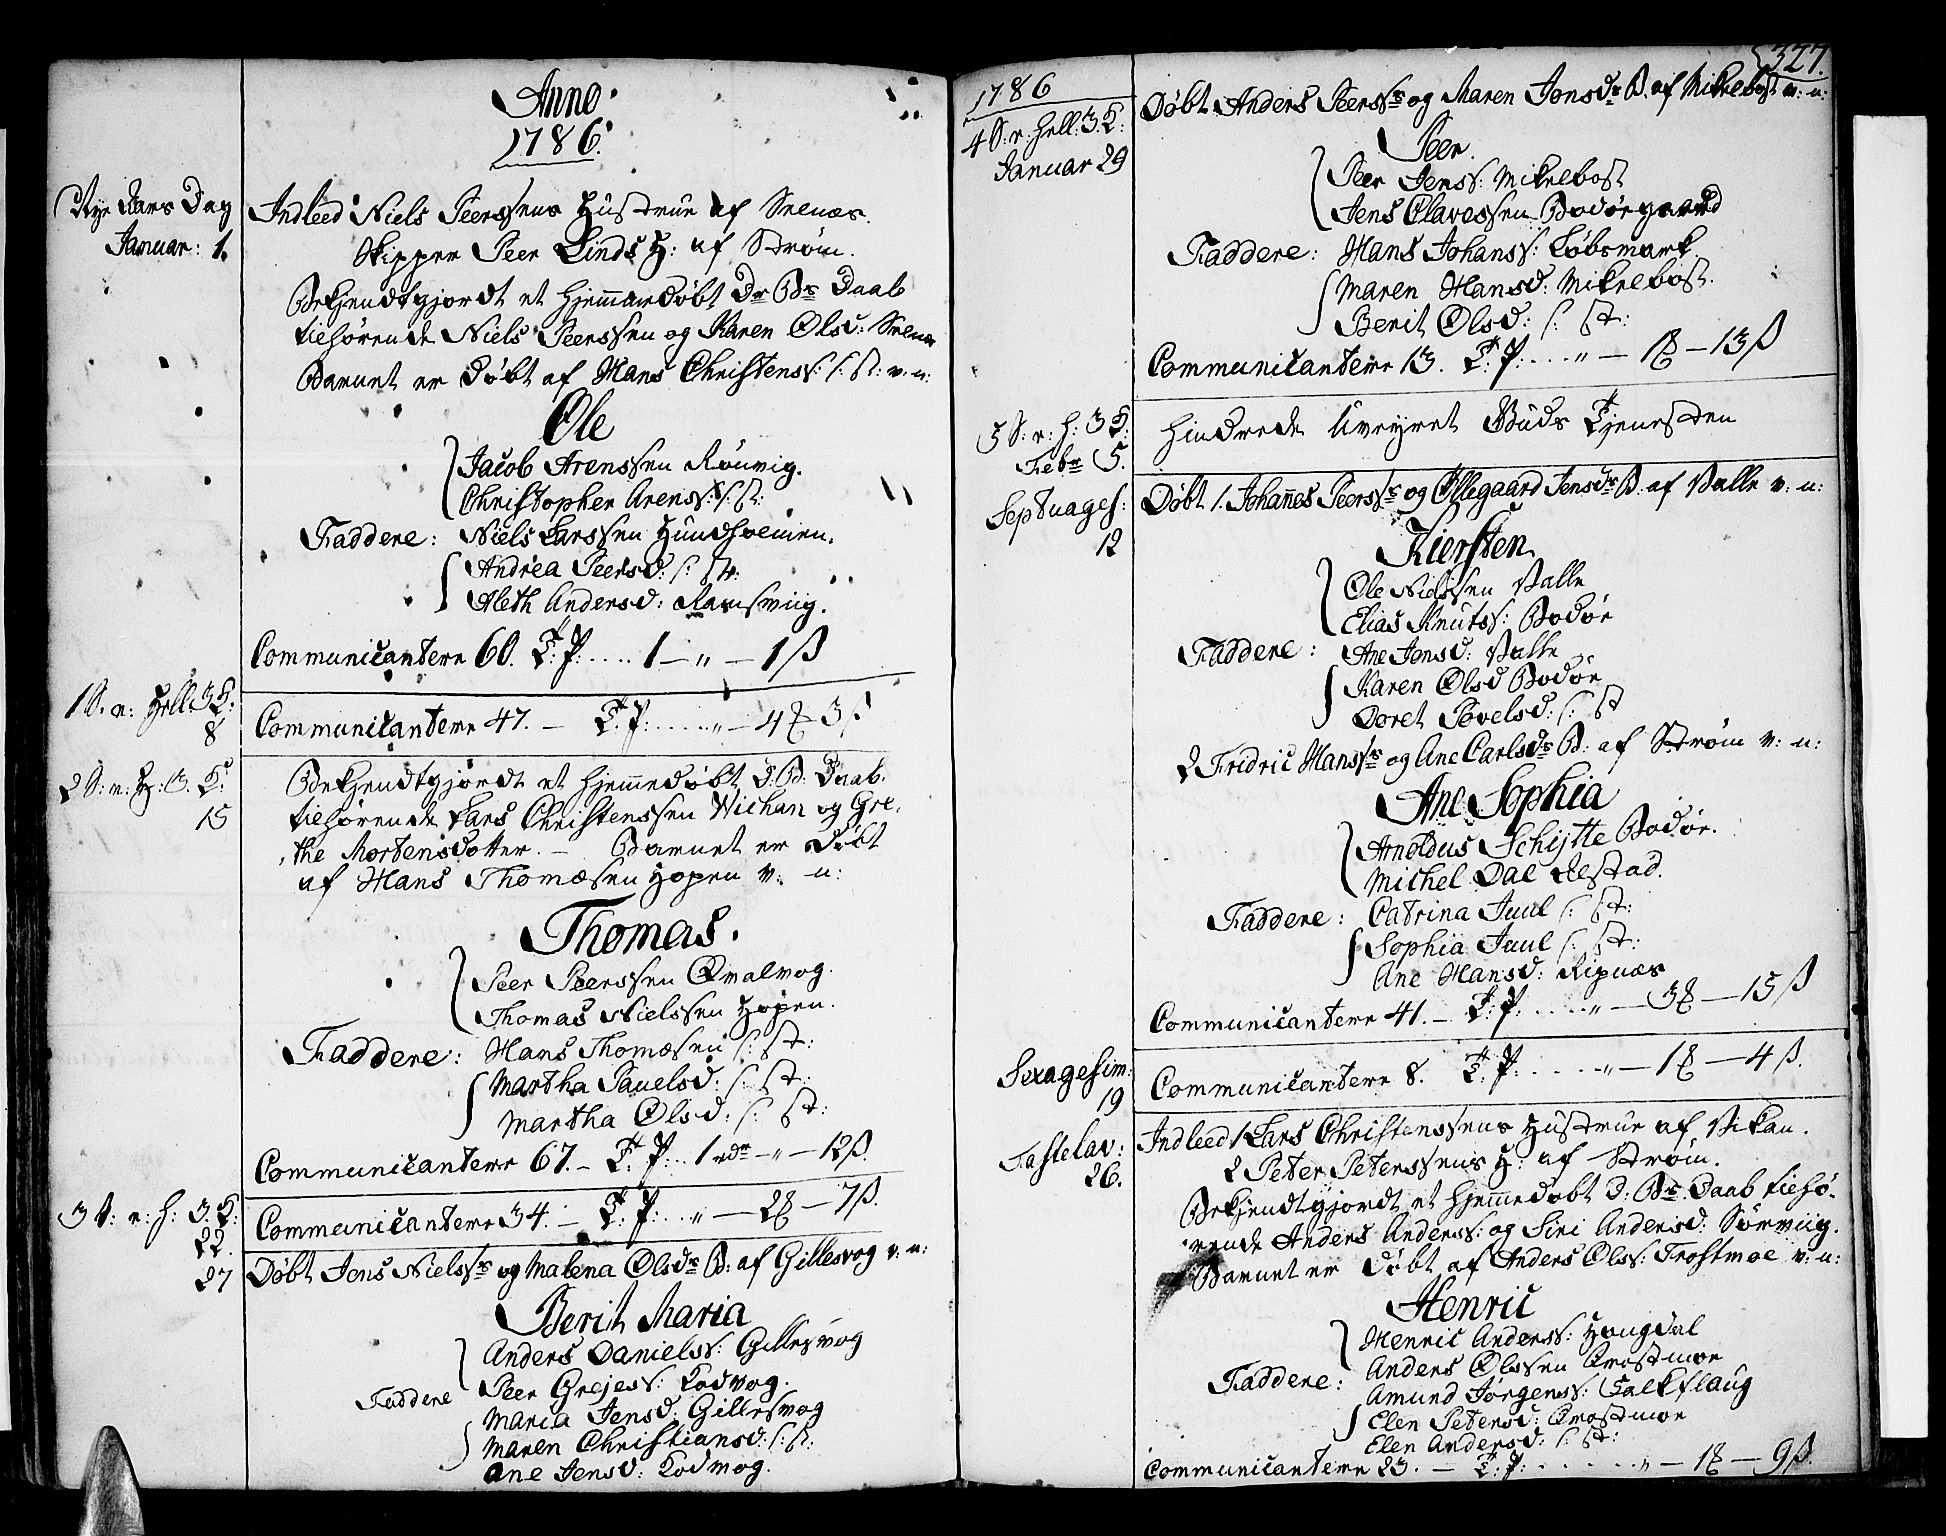 Anno
1786.
Nye Aars Dag
Januar: 1.
Indleed Niels Peerssens Hustrue af Seines.
Skipper Peer Linds H: af Strøm.
Bekjendtgjordt et hjemmedøbt Dr. Bs Daab
tilhørende Niels Peerssen og Karen Olsd:
Barnet er døbt af Hans Christens: s: st: v: n:
Ole
Jacob Arenssen Rönvig.
Christopher Arens: s: st:
Faddere: Niels Larssen Hundholmen.
Andrea Peersd: s: st:
Aleth Andersd: Ramsviig.
Communicantere 60. T: P: ..... 1 — „ — 1 ß
1 S. e: Hell: 3 K:
8
Communicantere 47. — T: P: ..... „ — 4 — 3 ß
2 S: e: H: 3. K:
15
Bekjendtgjordt et hjemmedøbt D: B: Daab.
tilhørende Lars Christenssen Wichan og Gre-
the Mortensdotter. — Barnet er døbt
af Hans Thomæsen Hopen v: n:
Thomas.
Peer Peerssen Qvalvog.
Thomas Nielssen Hopen.
Faddere: Hans Thomæsen s: st:
Martha Pauelsd: s: st:
Martha Olsd: s: st:
Communicantere 67. — T: P: .. 1 rdr — „ — 12 ß.
3 S: e: h: 3. K:
22.
Communicantere 34. — T: P: ... „ — 2 — 7 ß.
27
Døbt Jens Nielss: og Malena Olsdr B: af Gillesvog v: n:
Berit Maria
Anders Daniels: Gillesvog
Peer Grejess: Kodvog.
Faddere
Maria Jensd: Gillesvog
Maren Christiansd: s: st:
Ane Jensd: Kodvog.
327.
1786
4 S: e: hell: 3 K:
Januar 29
Døbt Anders Peerss: og Maren Jensdr B. af Mikelbost v: n:
Peer.
Peer Jenss: Mikelbost
Jens Olavessen Bodøegaard
Faddere: Hans Johanss: Løbsmark
Maren Hansd: Mikelbost.
Berit Olsd: s: st:
Communicantere 13. T: P: .... „ — 1 — 13 ß
5 S: e: h: 3 K:
Febr 5.
Hindrede Uveyret Guds Tjenesten
Septuages:
12
Døbt 1. Johañes Peerss: og Ollegaard Jensdr B. af Valle v: n:
Kiersten
Ole Nielssen Valle
Elias Knutss: Bodøe
Faddere: Ane Jensd: Valle
Karen Olsd Bodøe
Doret Povelsd: s: st
2 Fridric Hanss: og Ane Carlsdr B: af Strøm v: n:
Ane Sophia
Arnoldus Schytte Bodøe.
Michel Dal Restad.
Faddere: Catrina Juul s: st:
Sophia Juul s: st:
Ane Hansd: Ripnæs
Communicantere 41. — T: P: ..... „ — 3 — 15 ß
Sexagesim:
19
Communicantere 8. T: P: ..... „ — 1 — 4 ß.
Fastelav:
26.
Indleed 1 Lars Christenssens Hustrue af Vikan.
2 Peter Peterssens H: af Strøm.
Bekjendtgjordt et hjemmedøbt D: Bs: Daab tilhø-
rende Anders Anderss: og Siri Andersd: Sørviig.
Barnet er døbt af Anders Olss: Trostmoe v: n:
Henric
Henric Anderss: Haugdal
Anders Olssen Trostmoe
Faddere:
Amund Jørgenss: Falkflaug
Elen Petersd: Trostmoe
Elen Andersd: s: st:
Communicantere 23. — T: P: ...... „ — 1 — 9 ß.